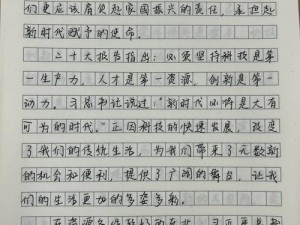 们更应该肩负起家国振兴的责任，承担起
新时代赋予的使命。
二十大报告指出：必须坚持科技是第
一生产力，人才是第一资源，创新是第一
动力。习总书记说过：“新时代必将是大有
可为的时代。”正因科技的快速发展，改变
了我们的传统生活，为我们带来了无数新
的机会和便利，提供了广阔的舞台，让我
们的生活更加的多姿多彩。